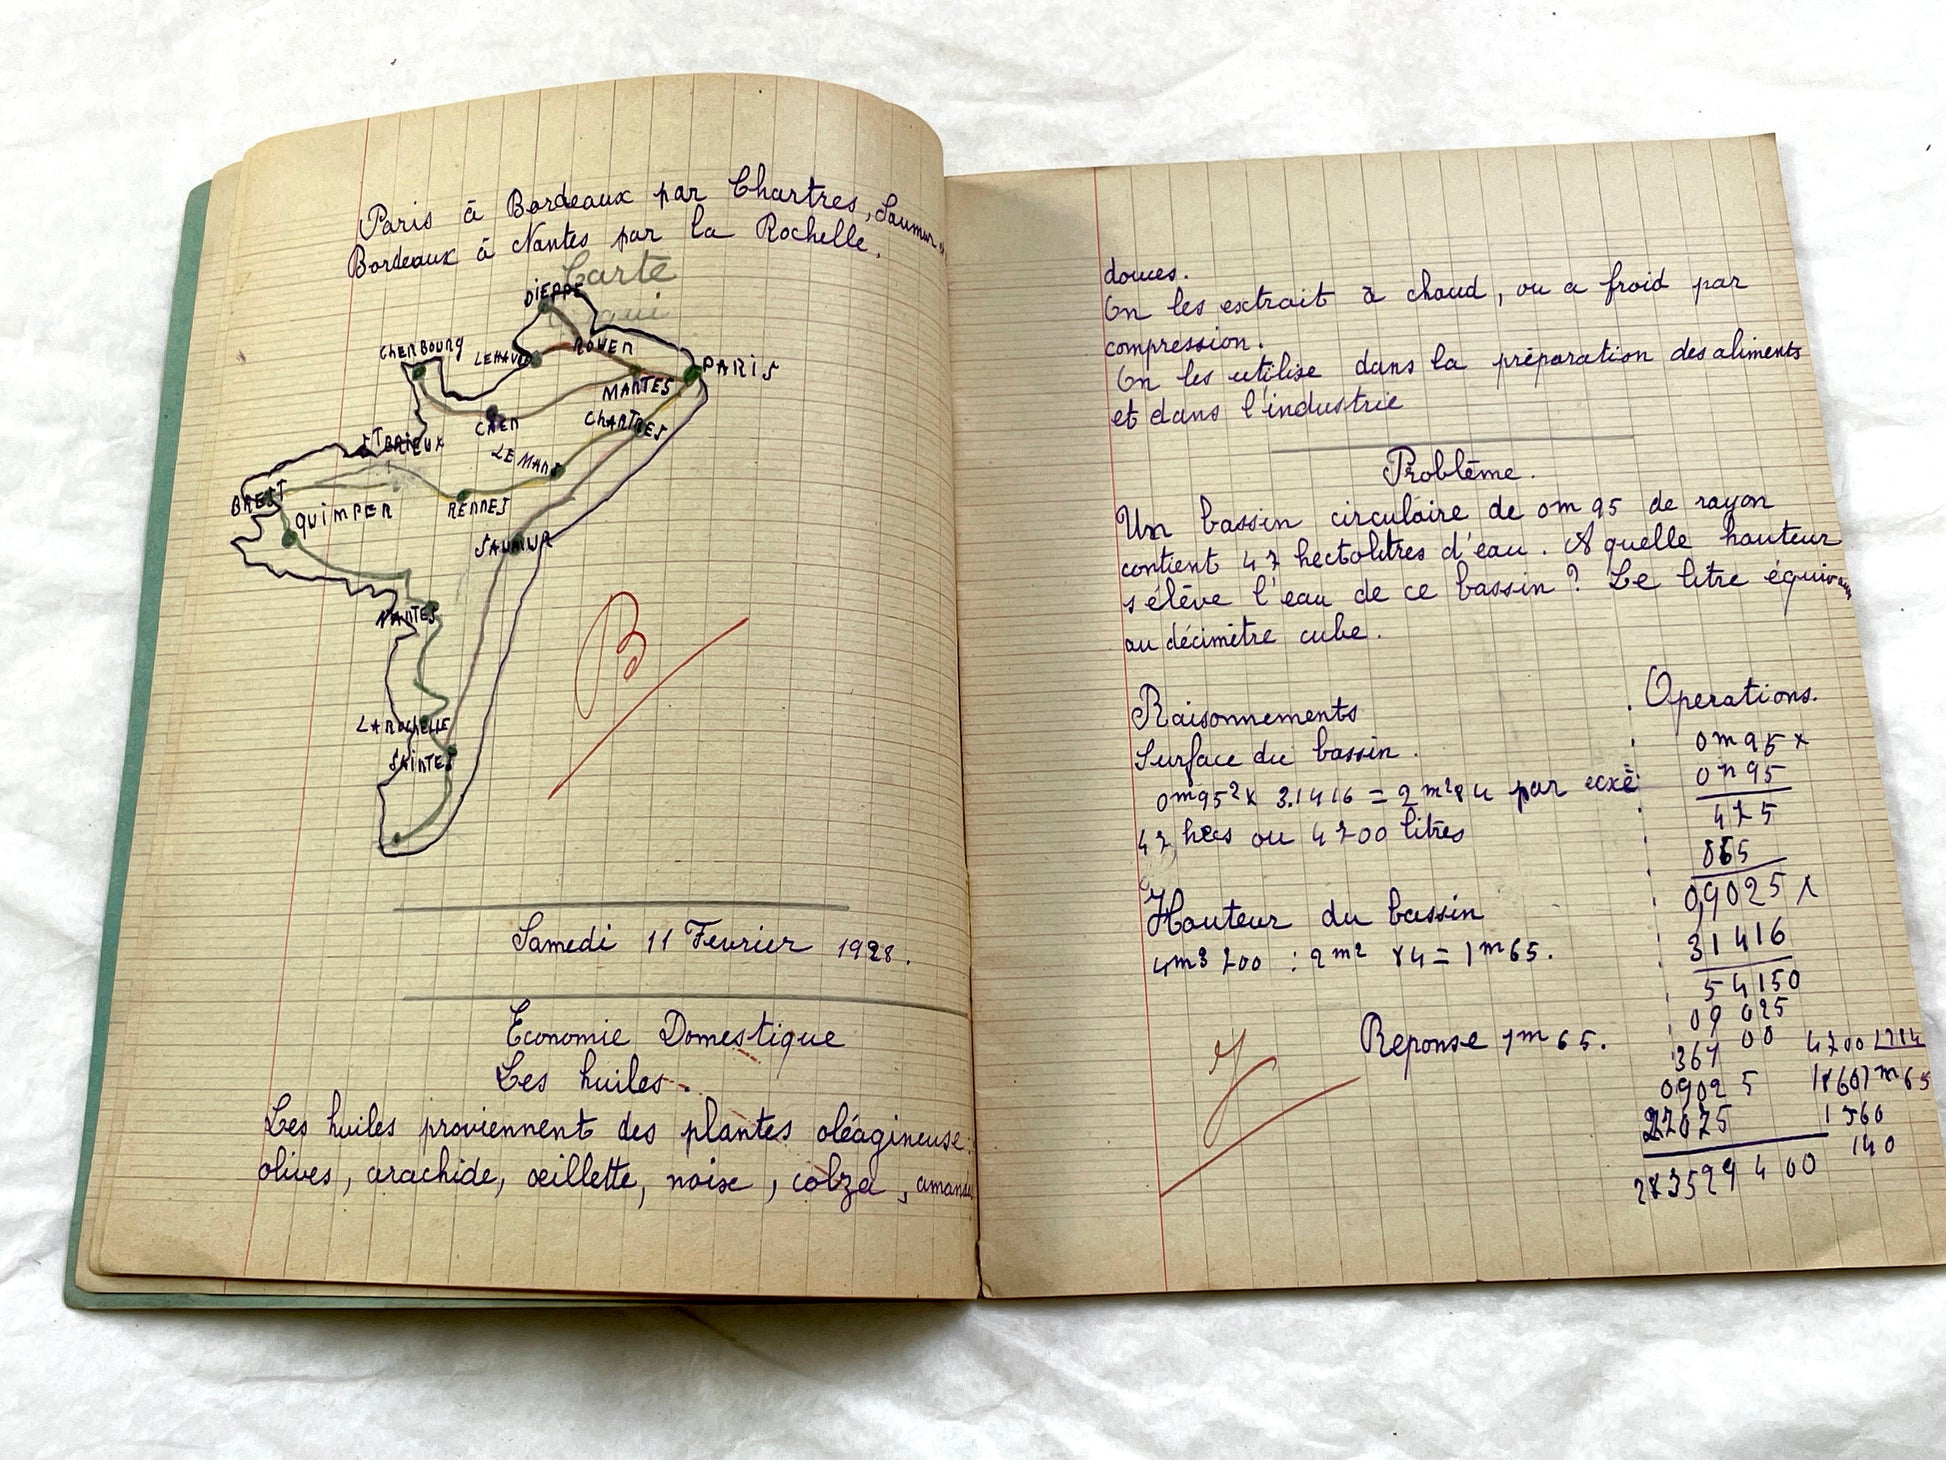 Paris à Bordeaux par Chartres, Saumur
Bordeaux à Nantes par la Rochelle.
Carte
qui
DIEPPE
CHERBOURG
LEHAVRE
ROUEN
PARIS
MANTES
CAEN
CHARTRES
ST BRIEUX
LE MANS
BREST
QUIMPER
RENNES
SAUMUR
NANTES
LA ROCHELLE
SAINTES
B
Samedi 11 Fevrier 1928.
Economie Domestique
Les huiles.
Les huiles proviennent des plantes oléagineuse:
olives, arachide, œillette, noix, colza, amand
douces.
On les extrait à chaud, ou a froid par
compression.
On les utilise dans la préparation des aliments
et dans l'industrie
Problème.
Un bassin circulaire de 0m95 de rayon
contient 47 hectolitres d'eau. A quelle hauteur
s élève l'eau de ce bassin? Le litre équivaut
au décimètre cube.
Raisonnements
Operations.
Surface du bassin.
0m95² x 3.1416 = 2m²84 par ecxè
47 hecs ou 4700 litres
Hauteur du bassin
4m3 700 : 2m² 84 = 1m65.
Reponse 1m65.
0m95 x
0m95
475
855
0,9025 x
31416
54150
09025
3610 0
09025
27075
283529400
4700
1m65
1860
140